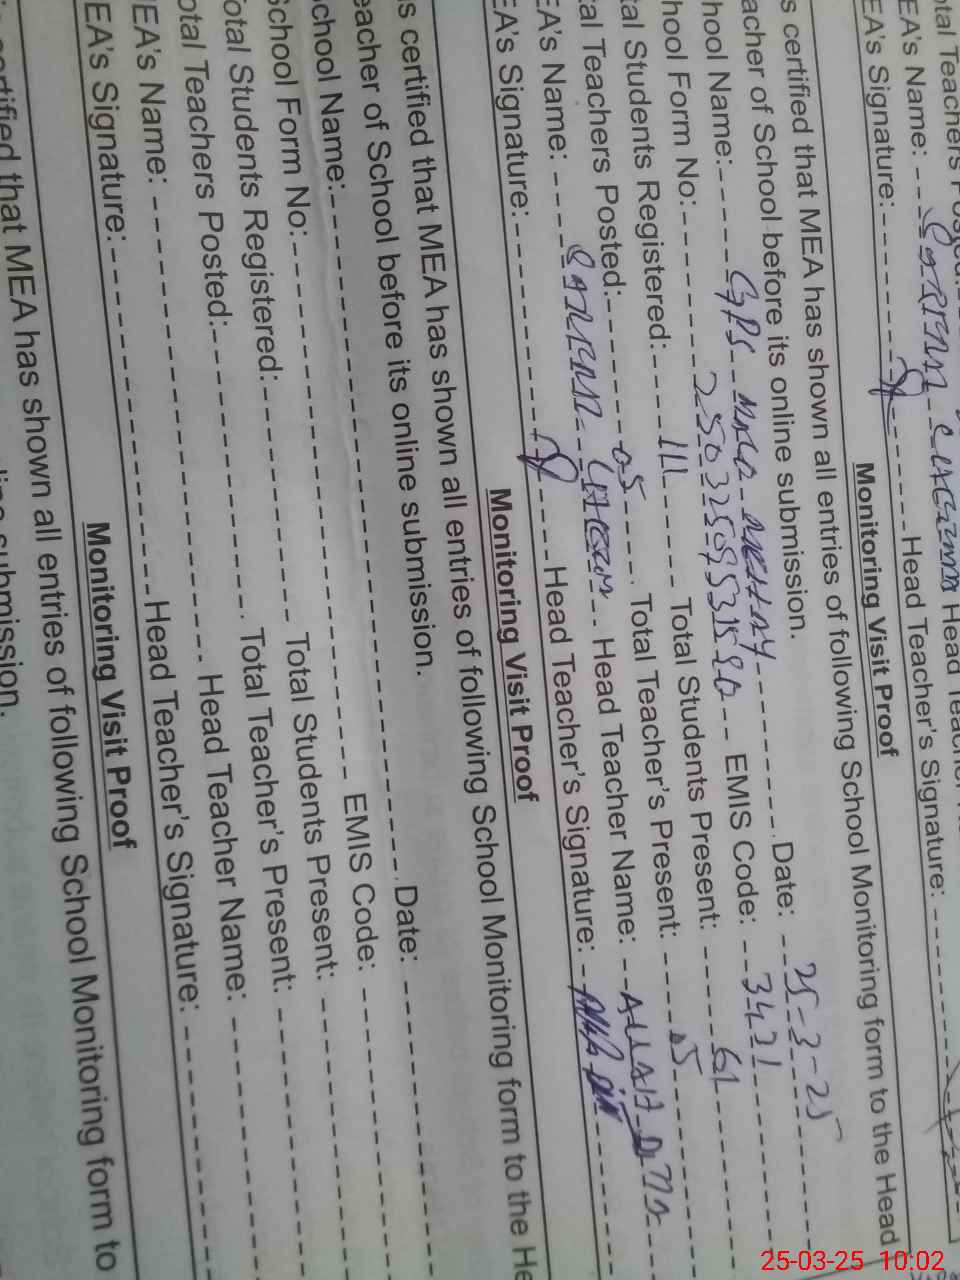 otal Teachers
EA's Name:
EA's Signature: Head Teacher's Signature:
Monitoring Visit Proof
s certified that MEA has shown all entries of following School Monitoring form to the Head
acher of School before its online submission.
hool Name: GPS Date: 25-3-25
hool Form No: EMIS Code: 3431
tal Students Registered: 111 Total Students Present: 61
tal Teachers Posted: 05 Total Teacher's Present: 05
EA's Name: Head Teacher Name: ALLAH
EA's Signature: Head Teacher's Signature:
Monitoring Visit Proof
is certified that MEA has shown all entries of following School Monitoring form to the He
eacher of School before its online submission.
chool Name: Date:
School Form No: EMIS Code:
Total Students Registered: Total Students Present:
otal Teachers Posted: Total Teacher's Present:
MEA's Name: Head Teacher Name:
MEA's Signature: Head Teacher's Signature:
Monitoring Visit Proof
certified that MEA has shown all entries of following School Monitoring form to
submission.
25-03-25 10:02